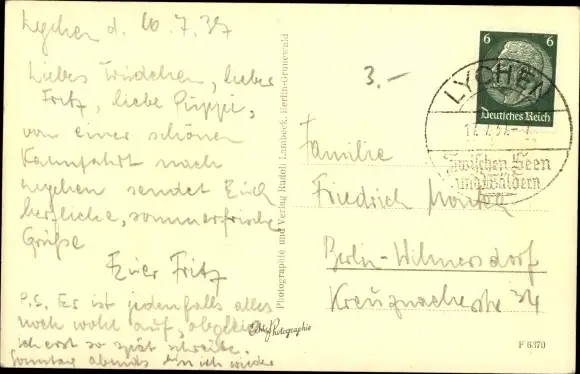 Lychen d. 10.7.37
Liebes Trudchen, lieber
Fritz, liebe Puppi,
von einer schönen
Kahnfahrt nach
Lychen sendet Euch
herzliche, sommerfrische
Grüße
Euer Fritz
P.S. Es ist jedenfalls alles
noch wohl auf, obgleich
ich erst so spät schreibe.
Sonntag abends bin ich wieder
Photographie und Verlag Rudolf Lambeck, Berlin-Grunewald
Echte Photographie
3.-
6 6
Deutsches Reich
LYCHEN
Zwischen Seen
und Wäldern
Familie
Friedrich
Berlin-Wilmersdorf
Kreuznacherstr 34
F 6370